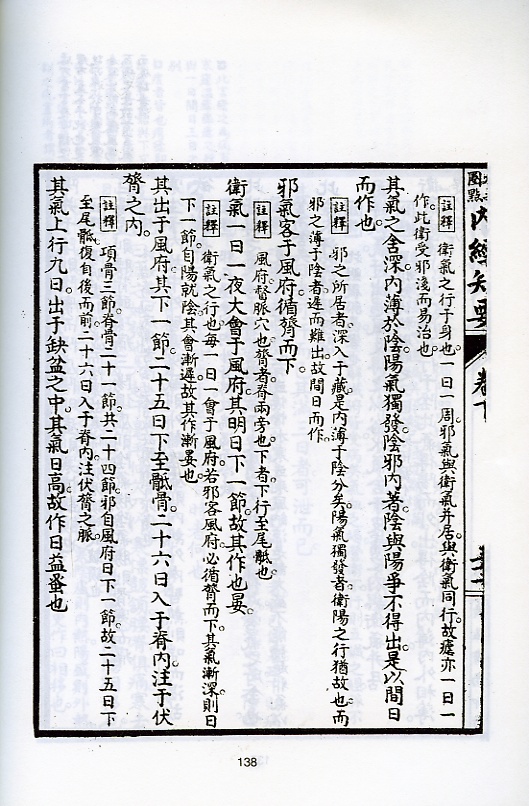 圈點內經知要
卷下
註釋 衛氣之行于身也一日一周邪氣與衛氣并居與衛氣同行故瘧亦一日一
作此衛受邪淺而易治也
其氣之舍深內薄於陰陽氣獨發陰邪內著陰與陽爭不得出是以間日
而作也
註釋 邪之所居者深入于藏是內薄于陰分矣陽氣獨發者衛陽之行猶故也而
邪之薄于陰者遲而難出故間日而作
邪氣客于風府循膂而下
註釋 風府督脈穴也膂者脊兩旁也下者下行至尾骶也
衛氣一日一夜大會于風府其明日下一節故其作也晏
註釋 衛氣之行也每一日一會于風府若邪客風府必循膂而下其氣漸深則日
下一節自陽就陰其會漸遲故其作漸晏也
其出于風府其下一節二十五日下至骶骨二十六日入于脊內注于伏
膂之內
註釋 項骨三節脊骨二十一節共二十四節邪自風府日下一節故二十五日下
至尾骶復自後而前二十六日入于脊內注伏膂之脈
其氣上行九日出于缺盆之中其氣日高故作日益蚤也
138